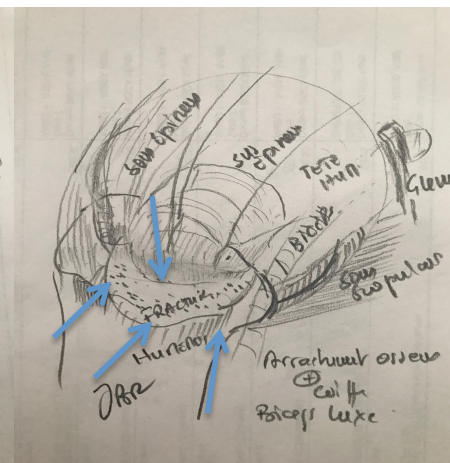 Sous épineux
Sus
épineux
TETE
Hum.
Biceps
Sous
Scapulaire
FRACTURE
HUMERUS
Arrachement osseux
+
Coiffe
Biceps luxé